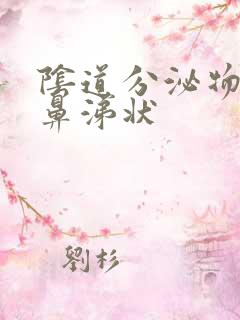 陰道分泌物
鼻涕状
劉杉